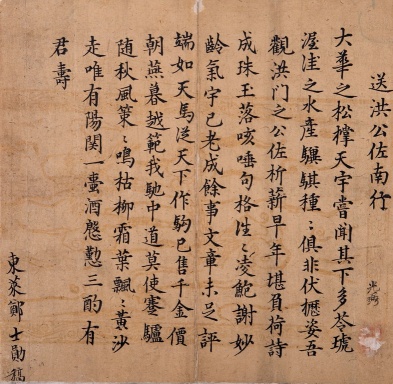 送洪公佐南行
大華之松撐天宇嘗聞其下多苓琥
渥洼之水產驥騏種〻俱非伏櫪姿吾
觀洪門之公佐析薪早年堪負荷詩
成珠玉落咳唾句格往〻凌鮑謝妙
齡氣宇已老成餘事文章未足評
端如天馬從天下作駒已售千金價
朝燕暮越範我馳中道莫使蹇驢
随秋風策〻鳴枯柳霜葉飄〻黃沙
走唯有陽関一壺酒慇懃三酌有
君壽
東萊鄭士勛稿